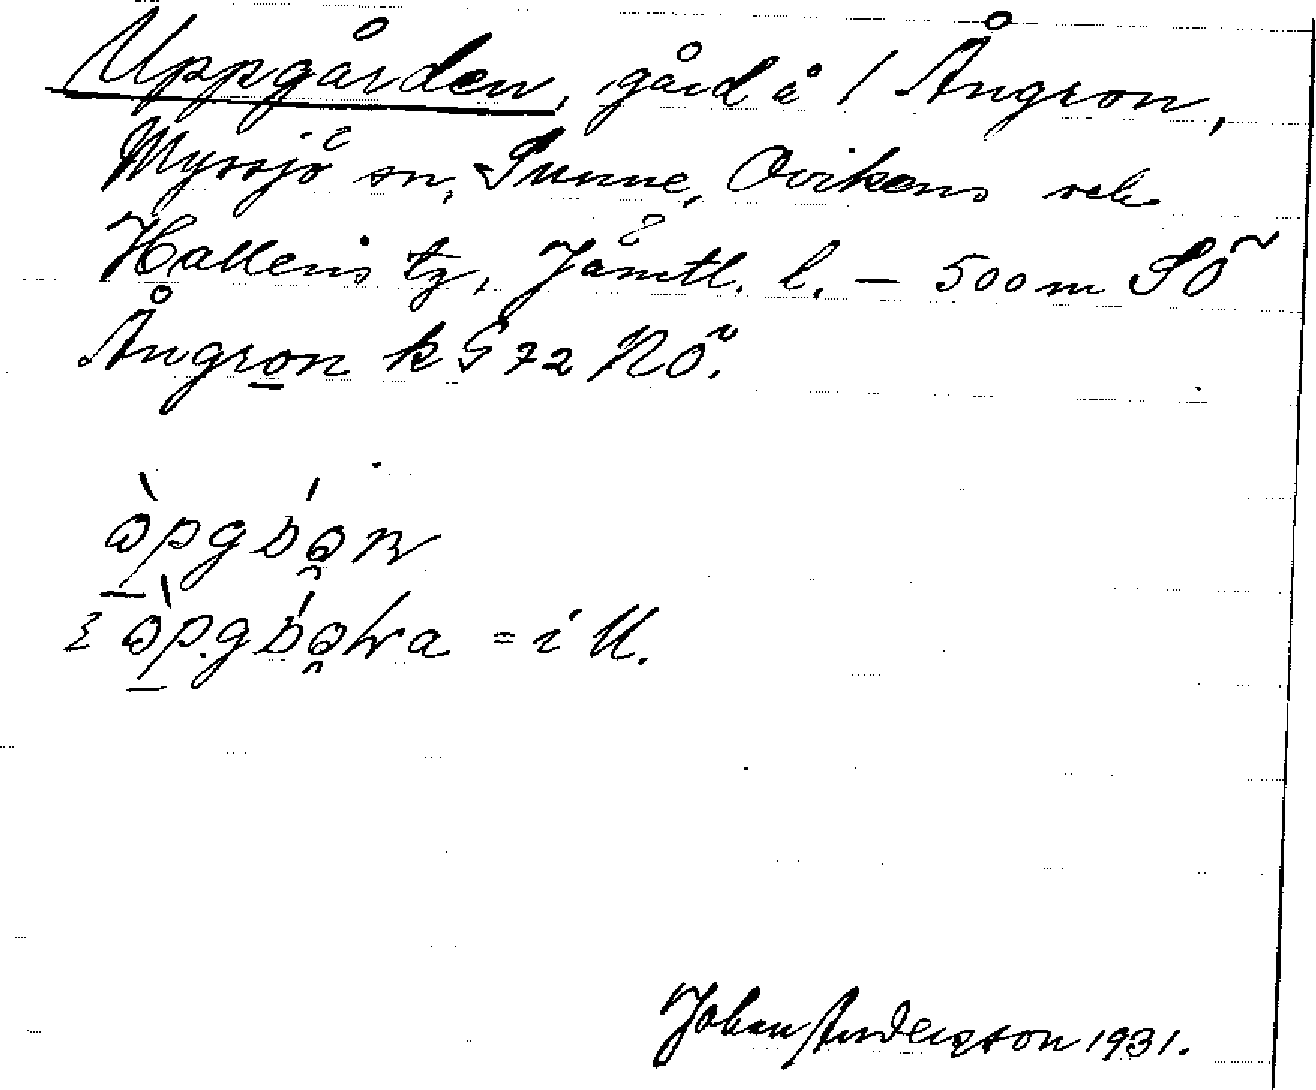 Uppgården, gård å / Ångron,
Myssjö sn, Sunne, Ovikens
Hallens tg, Jämtl. l. – 500 m SÖ
Ångron k 72 NÖ.
= i U.
Johan Anderson 1931.